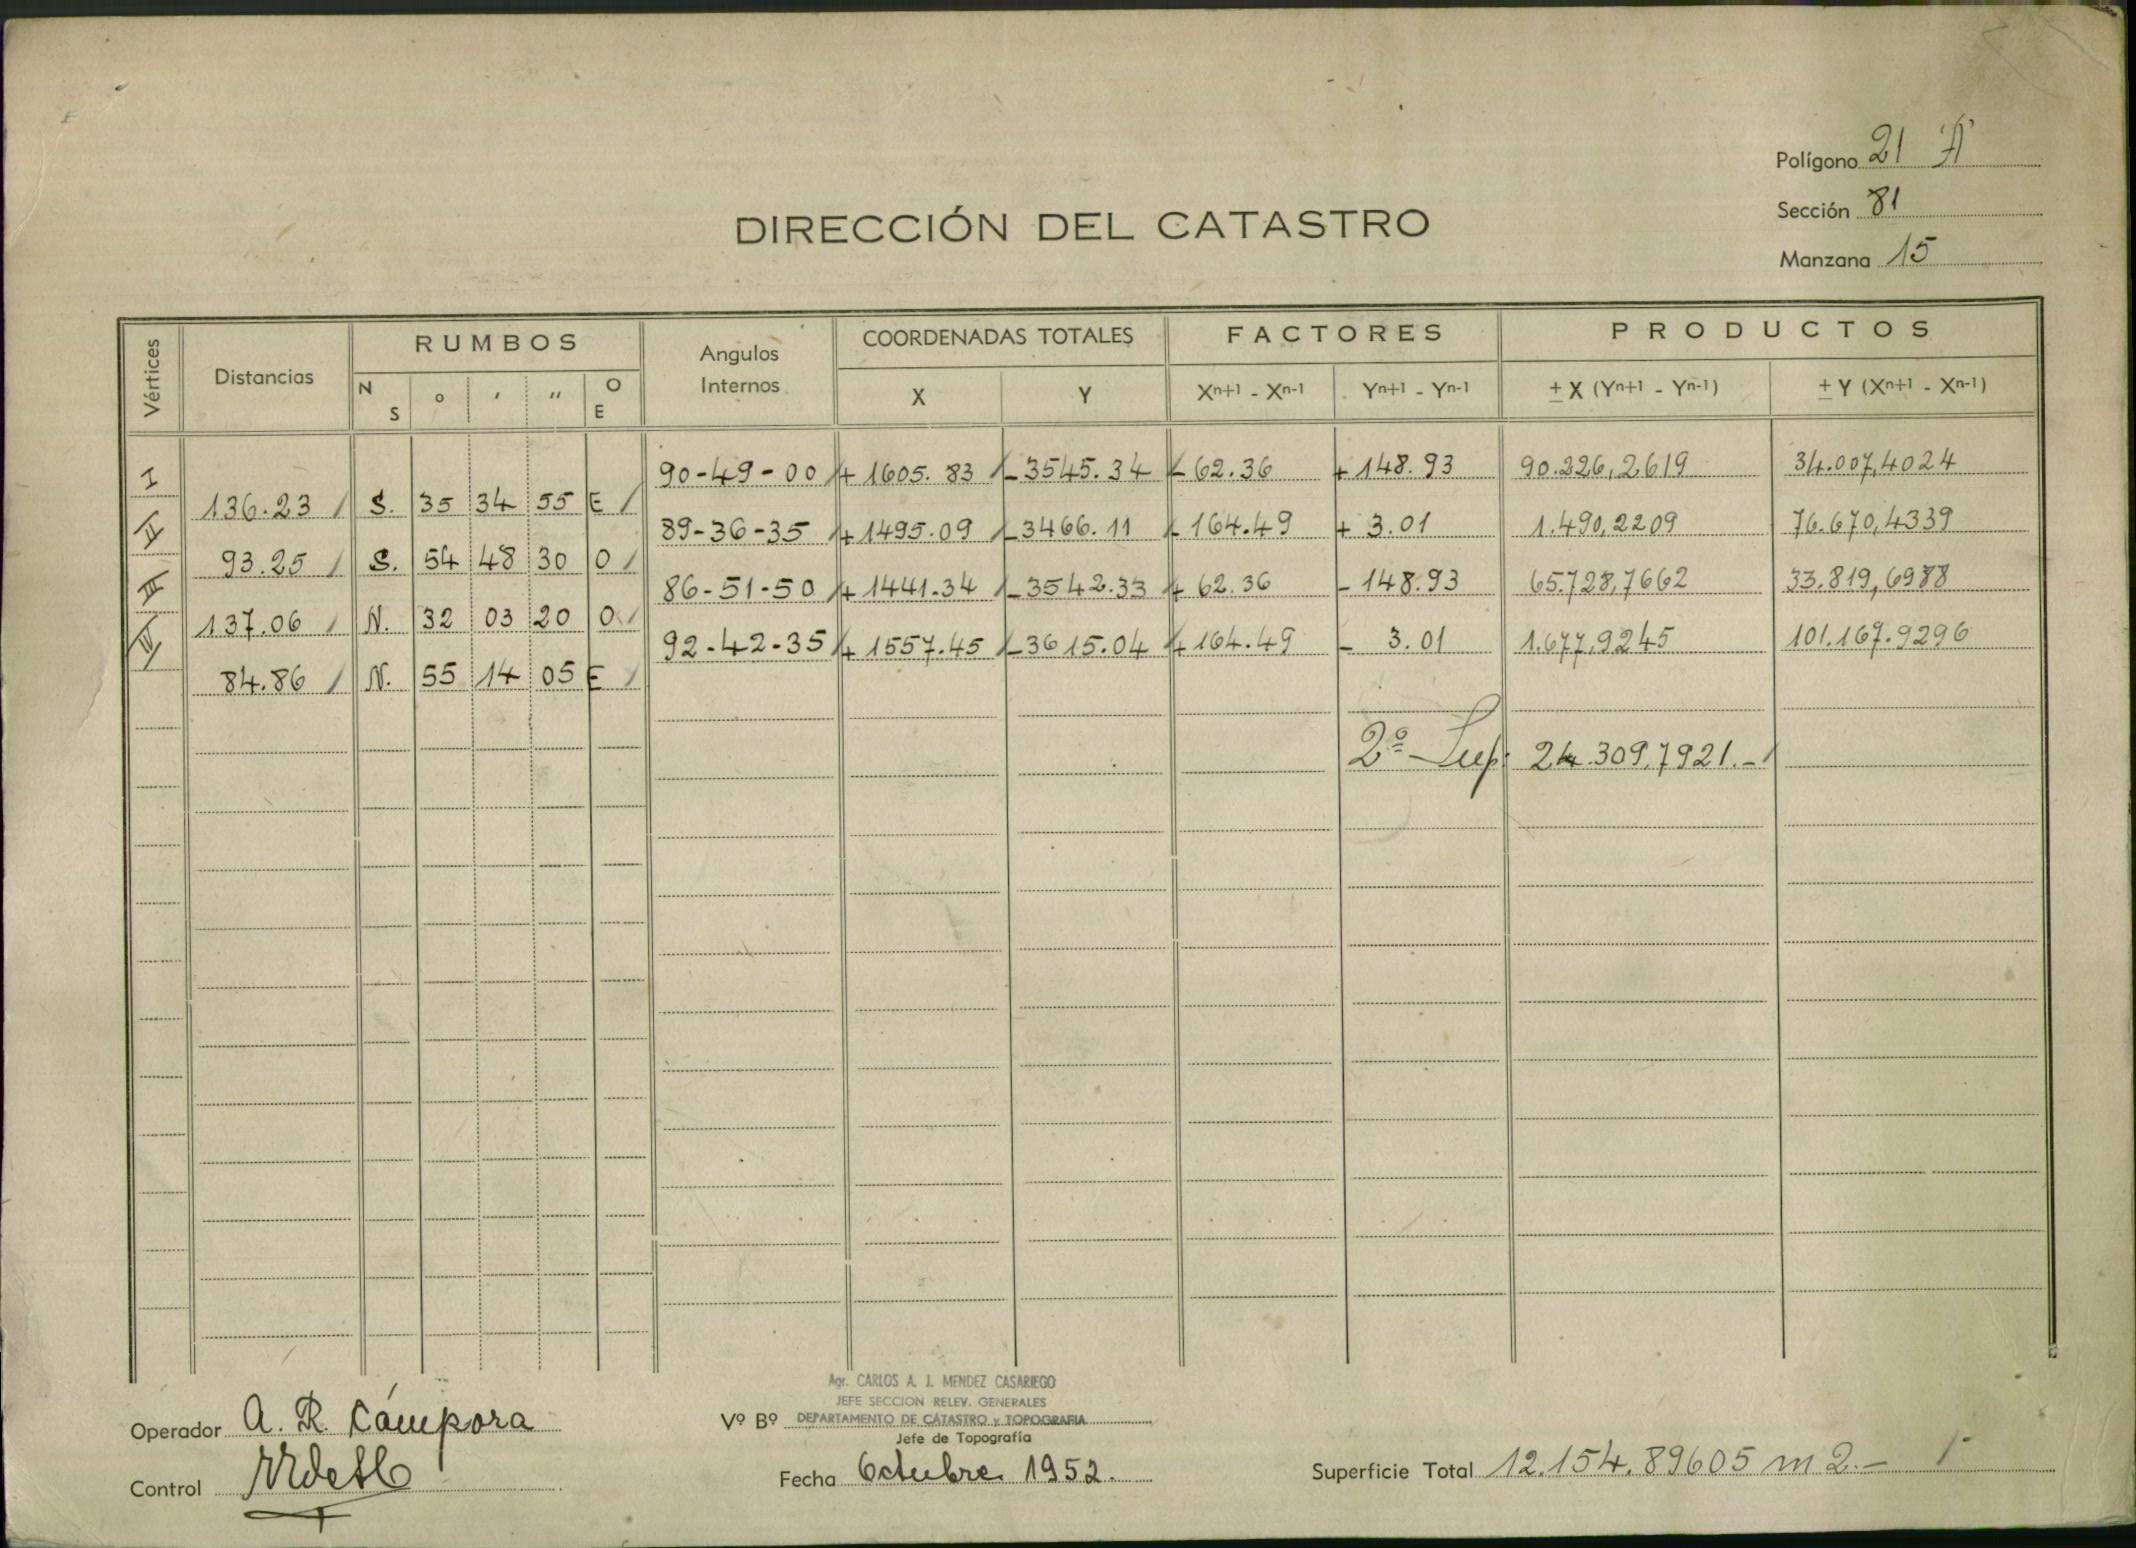 Polígono 21 "A"
Sección 81
Manzana 15
DIRECCIÓN DEL CATASTRO
Vértices Distancias RUMBOS Angulos Internos COORDENADAS TOTALES FACTORES PRODUCTOS
N S ° ' " O E X Y Xn+1 - Xn-1 Yn+1 - Yn-1 ± X (Yn+1 - Yn-1) ± Y (Xn+1 - Xn-1)
I 90-49-00 + 1605.83 - 3545.34 - 62.36 + 148.93 90.226,2619 34.007,4024
136.23 S. 35 34 55 E
II 89-36-35 + 1495.09 - 3466.11 - 164.49 + 3.01 1.490,2209 76.670,4339
93.25 S. 54 48 30 O
III 86-51-50 + 1441.34 - 3542.33 + 62.36 - 148.93 65.728,7662 33.819,6988
137.06 N. 32 03 20 O
IV 92-42-35 + 1557.45 - 3615.04 + 164.49 - 3.01 1.677,9245 101.167.9296
84.86 N. 55 14 05 E
2º Sup: 24.309,7921.-
Agr. CARLOS A. J. MENDEZ CASARIEGO
JEFE SECCION RELEV. GENERALES
Operador A. R. Cámpora Vº Bº DEPARTAMENTO DE CATASTRO y TOPOGRAFIA
Jefe de Topografía
Control Fecha Octubre 1952. Superficie Total 12.154.89605 m2.-